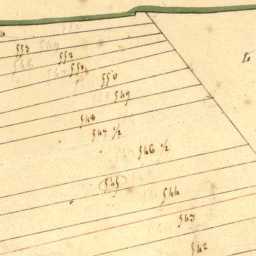 553
552
551
550
549
548
547 ½
546 ½
545
544
543
542